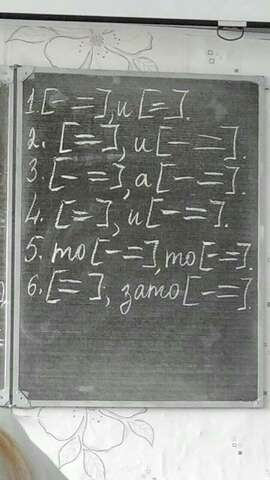 1. [– =], и [=].
2. [=], и [– =].
3. [– =], а [– =].
4. [=], и [– =].
5. то [– =], то [– =].
6. [=], зато [– =].